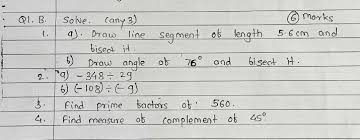 Q1. B. Solve. (any 3) (6) Marks
1. a). Draw line segment of length 5.6 cm and
bisect it.
b) Draw angle of 76° and bisect it.
2. a) -348 ÷ 29
b) (-108) ÷ (-9)
3. Find prime factors of 560.
4. Find measure of complement of 45°